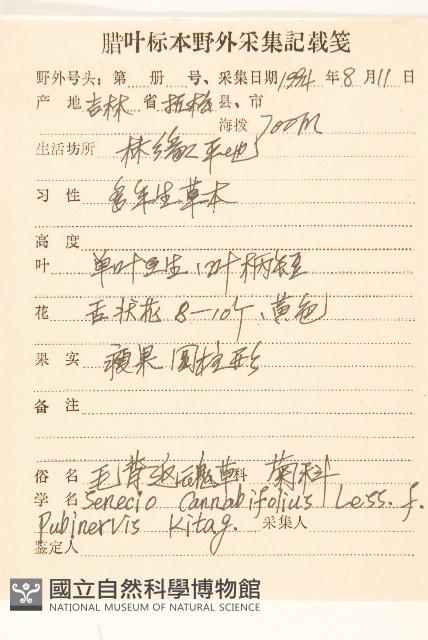 腊叶标本野外采集記载笺
野外号头: 第 册 号、采集日期 1994 年 8 月 11 日
产 地 吉林 省 抚松 县、市
海拨 700m
生活坊所 林缘、平地
习 性 多年生草本
高 度
叶 单叶互生、叶柄短
花 舌状花 8—10个、黄色
果 实 瘦果 圆柱形
备 注
俗 名 毛背返魂草 科 菊科
学 名 Senecio Cannabifolius Less. f.
Pubinervis Kitag. 采集人
鉴定人
國立自然科學博物館
NATIONAL MUSEUM OF NATURAL SCIENCE